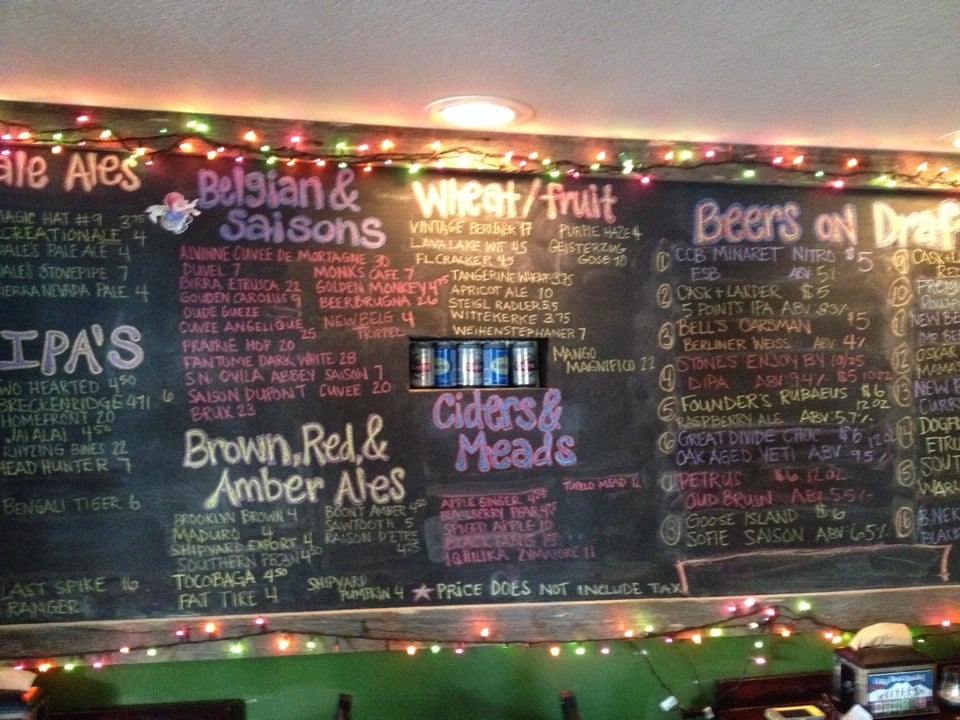 ale Ales
MAGIC HAT #9 3.75
CREATIONALE 4
DALE'S PALE ALE 4
DALE'S STOVEPIPE 7
SIERRA NEVADA PALE 4
IPA'S
TWO HEARTED 4.50
BRECKENRIDGE 471 6
HOMEFRONT 20
JAI ALAI 4.50
RHYZING BINES 22
HEAD HUNTER 7
BENGALI TIGER 6
LAST SPIKE 16
RANGER
Belgian &
Saisons
ALVINNE CUVEE DE MORTAGNE 30
DUVEL 7
MONK'S CAFE 7
BIRRA ETRUSCA 22
GOLDEN MONKEY 4.75
GOUDEN CAROLUS 9
BEERBRUGNA 26
OUDE GUEZE
CUVEE ANGELIQUE 25
NEW BELG 4
TRIPPEL
PRAIRIE HOP 20
FANTOME DARK WHITE 28
S.N. OVILA ABBEY SAISON 7
SAISON DUPONT CUVEE 20
BRUX 23
Brown, Red, &
Amber Ales
BROOKLYN BROWN 4
MADURO 4
SHIPYARD EXPORT 4
SOUTHERN PECAN 4.50
TOCOBAGA 4.50
FAT TIRE 4
BOONT AMBER 4.50
SAWTOOTH 5
RAISON D'ETRE 4.75
SHIPYARD
PUMPKIN 4
Wheat/fruit
VINTAGE BERLINER 17
LAVA LAKE WIT 4.5
FL. CRACKER 4.5
PURPLE HAZE 4
GEISTERZUG
GOSE 10
TANGERINE WHEAT 3.75
APRICOT ALE 10
STEIGL RADLER 3.5
WITTEKERKE 3.75
WEIHENSTEPHANER 7
MANGO
MAGNIFICO 22
Ciders &
Meads
TUPELO MEAD 12
APPLE GINGER 4.25
SPICED APPLE 10
BLACK FANG 15
IQHILIKA 11
★ PRICE DOES NOT INCLUDE TAX
Beers on Draf
1 CCB MINARET NITRO $5
ESB ABV 5%
2 CASK + LARDER $5
5 POINTS IPA ABV 8.3%
3 BELL'S OARSMAN $5
BERLINER WEISS ABV 4%
4 STONES ENJOY BY 10/25
DIPA ABV 9.4% $5 10oz
5 FOUNDER'S RUBAEUS $6 12oz
RASPBERRY ALE ABV 5.7%
6 GREAT DIVIDE CHOC $6 12oz
OAK AGED YETI ABV 9.5%
7 PETRUS $6 12oz
OUD BRUIN ABV 5.5%
8 GOOSE ISLAND $6
SOFIE SAISON ABV 6.5%
9 CASK + L
10
NEW BE
12 OSKAR
NEW B
CURR
14 DOGFI
ETR
SOUT
16 B. NEK
BLACK